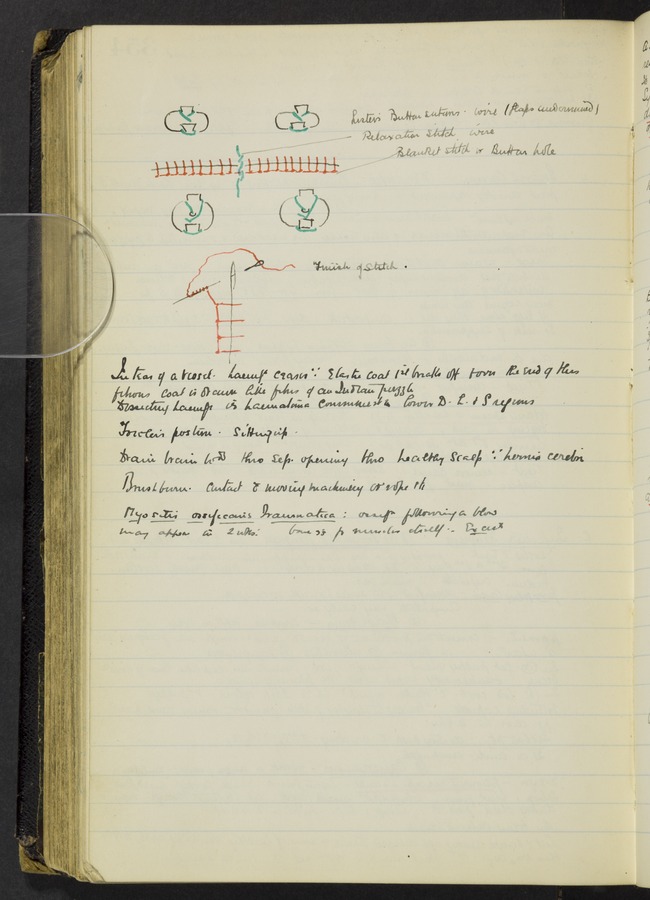 Lister's Button sutures - wire (flaps undermined)
Relaxation stitch wire
Blanket stitch or Button hole
Finish of stitch.
In tear of a vessel. haemge ceases ∵ Elastic coat breaks off down the end of this
fibrous coat is drawn like fibres of an Indian puzzle
Dissecting haemge is haematoma commonest in lower D. L. & S regions
Fowler's position. Sitting up.
Drain brain thro sep. opening thro healthy scalp ∵ hernia cerebri
Brushburn. Contact c̄ moving machinery or rope etc
Myositis ossificans Traumatica: ossifn following a blow
may appear in 2 wks. muscles itself.